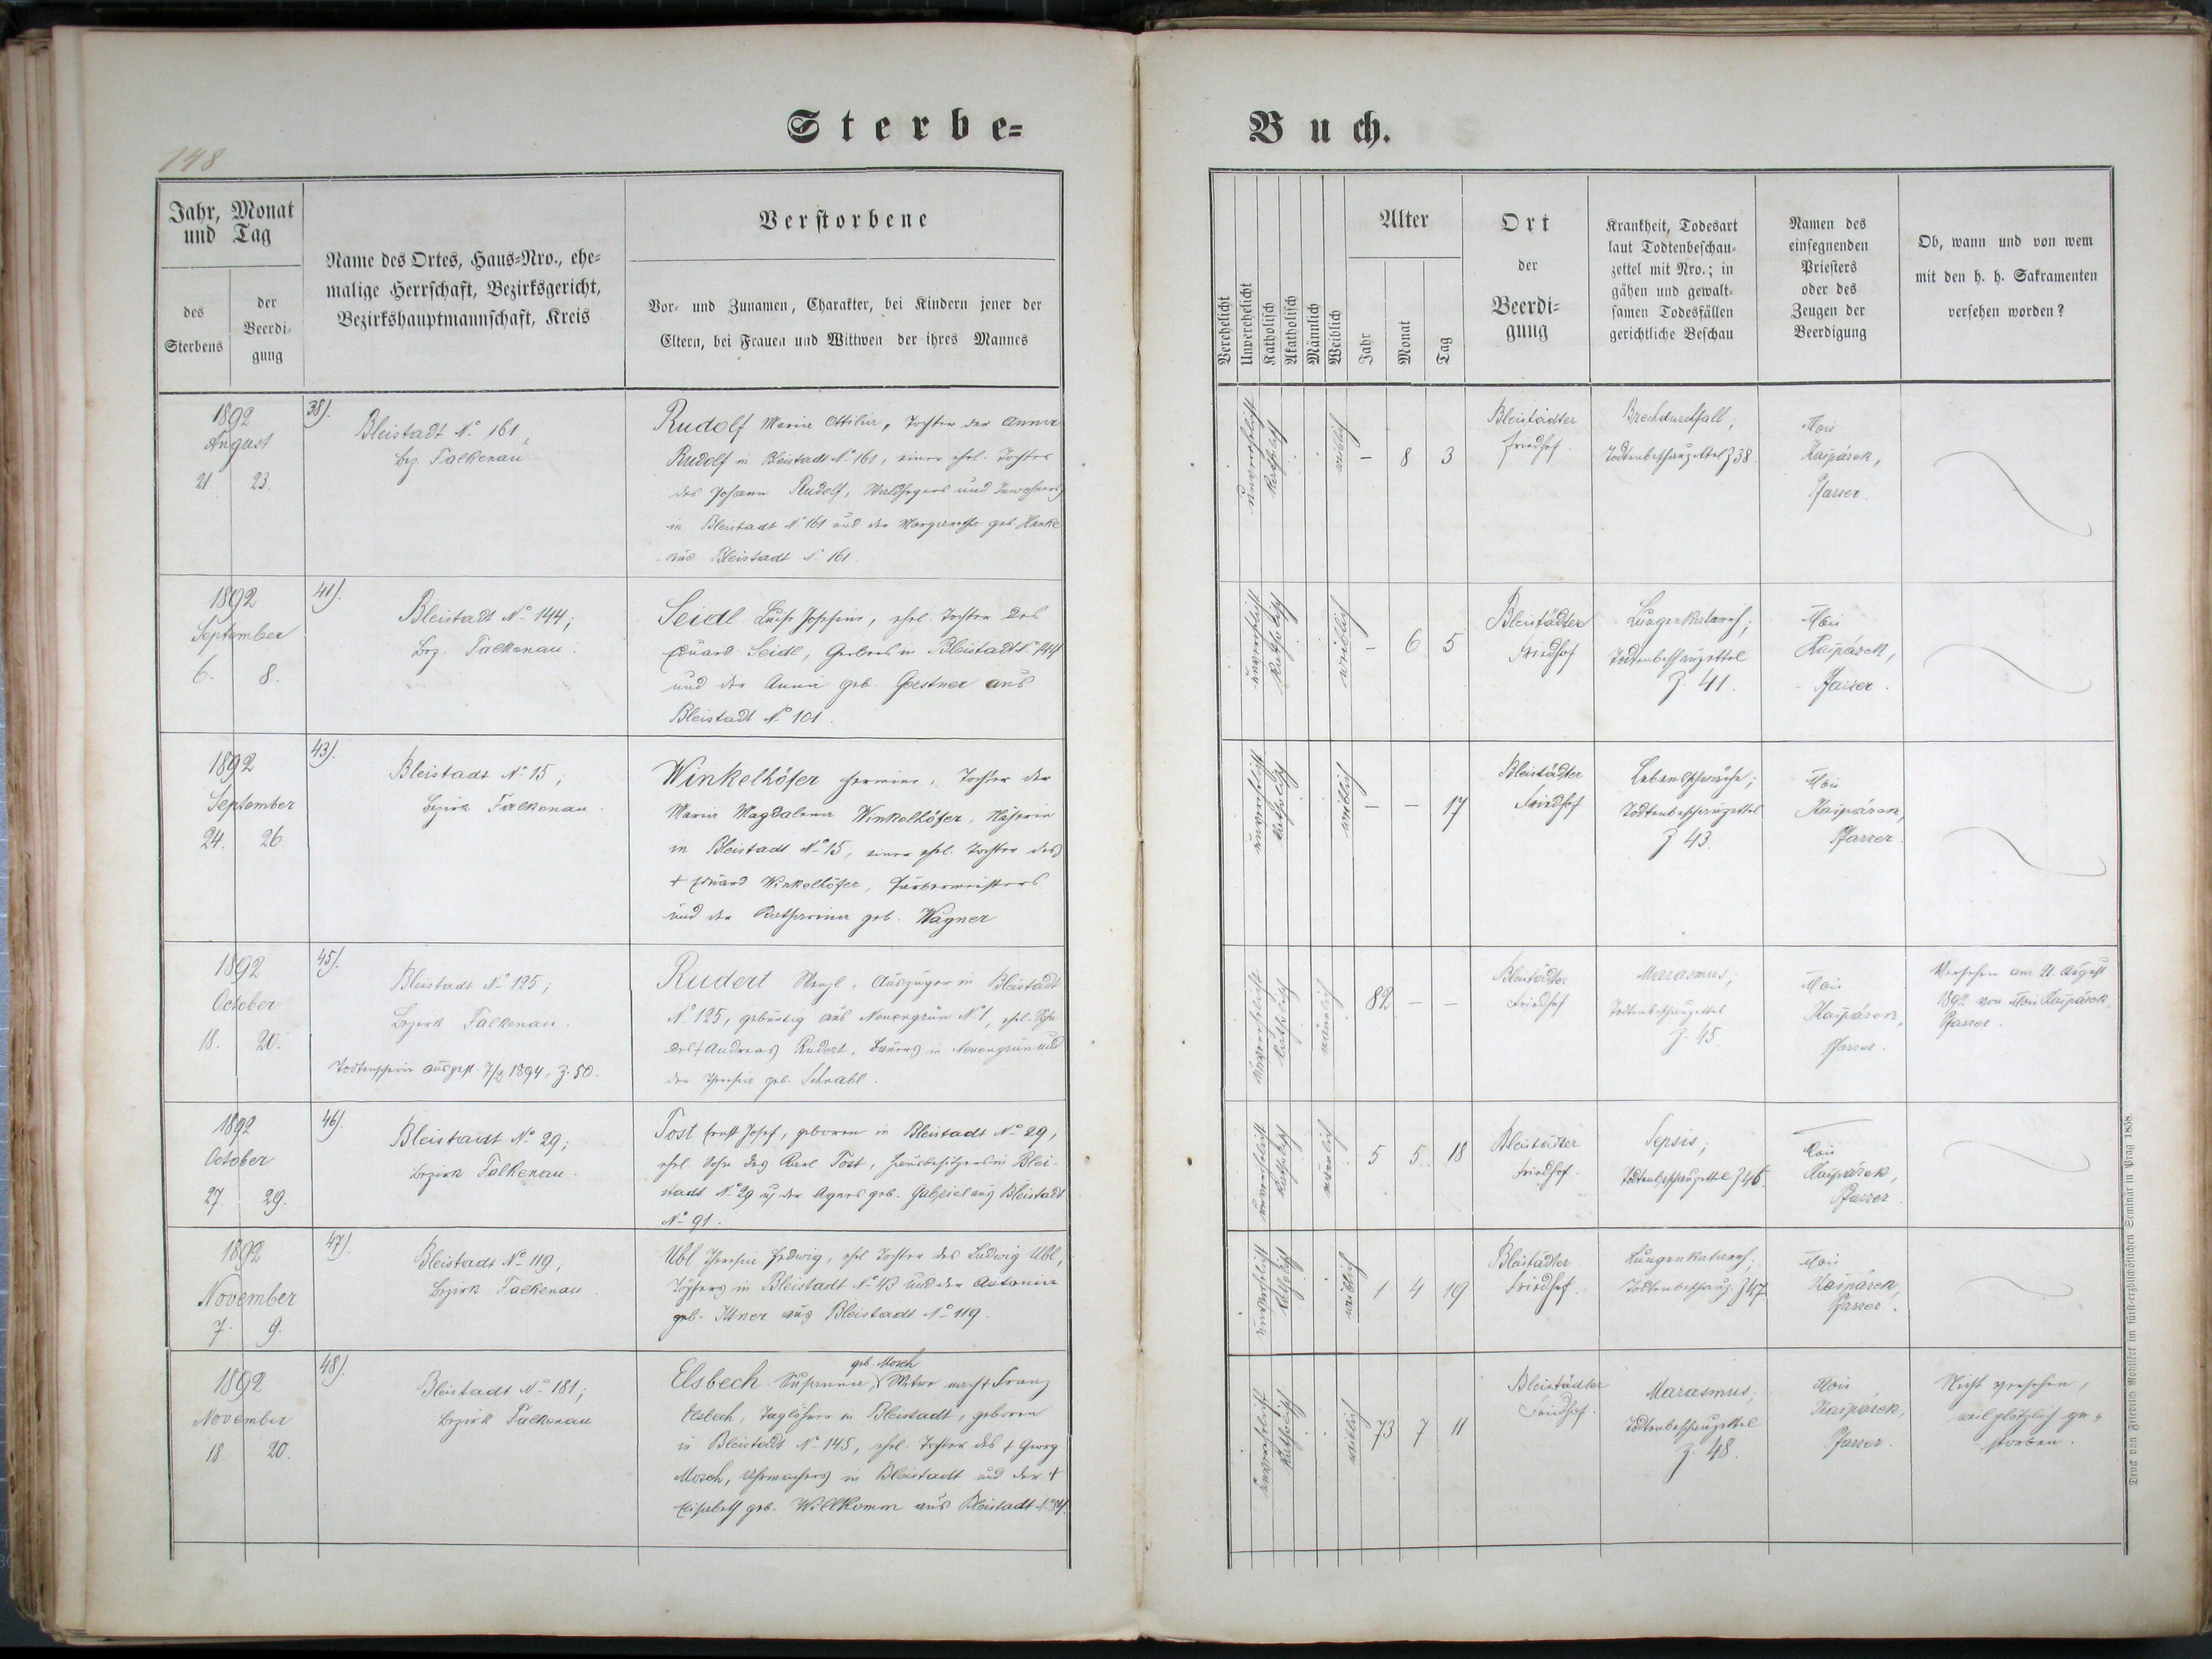 148
Sterbe=
Jahr, Monat
und Tag
des
Sterbens
der
Beerdi-
gung
Name des Ortes, Haus-Nro., ehe-
malige Herrschaft, Bezirksgericht,
Bezirkshauptmannschaft, Kreis
Verstorbene
Vor- und Zunamen, Charakter, bei Kindern jener der
Eltern, bei Frauen und Wittwen der ihres Mannes
1892
August
21. 23.
38).
Bleistadt No 161,
bez. Falkenau
Rudolf Maria Ottilia, Tochter der Anna
Rudolf in Bleistadt No 161, einer ehel. Tochter
des Johann Rudolf, Waldhegers und Inwohners
in Bleistadt No 161 und der Margaretha geb. Hanke
aus Bleistadt No 161.
1892
September
6. 8.
41).
Bleistadt No 144;
bez. Falkenau.
Seidl Luise Josefine, ehel. Tochter des
Eduard Seidl, Gerbers in Bleistadt No 144
und der Anna geb. Gerstner aus
Bleistadt No 101.
1892
September
24. 26.
43).
Bleistadt No 15;
Bezirk Falkenau.
Winkelhöfer Hermine, Tochter der
Maria Magdalena Winkelhöfer, Näherin
in Bleistadt No 15, einer ehel. Tochter des
+ Eduard Winkelhöfer, Färbermeisters
und der Katharina geb. Wagner
1892
October
18. 20.
45).
Bleistadt No 125;
Bezirk Falkenau.
Todtenschein ausgest. 7/2 1894, Z. 50.
Rudert Wenzl, Auszüger in Bleistadt
No 125, gebürtig aus Neuengrün No 1, ehel. Sohn
des + Andreas Rudert, Bauers in Neuengrün und
der Theresia geb. Schrabl.
1892
October
27. 29.
46).
Bleistadt No 29;
Bezirk Falkenau.
Tost Ernst Josef, geboren in Bleistadt No 29,
ehel. Sohn des Karl Tost, Hausbesitzers in Blei-
stadt No 29 u. der Agnes geb. Gabriel aus Bleistadt
No 91.
1892
November
7. 9.
47).
Bleistadt No 119;
Bezirk Falkenau.
Ubl Theresia Hedwig, ehel. Tochter des Ludwig Ubl,
Töpfers in Bleistadt No 43 und der Antonia
geb. Ittner aus Bleistadt No 119.
1892
November
18. 20.
48).
Bleistadt No 181;
Bezirk Falkenau
geb. Mosch
Elsbech Susanna, Witwe nach + Franz
Elsbech, Taglöhner in Bleistadt, geboren
in Bleistadt No 145, ehel. Tochter des + Georg
Mosch, Uhrmachers in Bleistadt und der +
Elisabeth geb. Willkomm aus Bleistadt
Buch.
Verehelicht
Unverehelicht
Katholisch
Akatholisch
Männlich
Weiblich
Alter
Jahr
Monat
Tag
Ort
der
Beerdi-
gung
Krankheit, Todesart
laut Todtenbeschau-
zettel mit Nro.; in
gähen und gewalt-
samen Todesfällen
gerichtliche Beschau
Namen des
einsegnenden
Priesters
oder des
Zeugen der
Beerdigung
Ob, wann und von wem
mit den h. h. Sakramenten
versehen worden?
unverehelicht
katholisch
weiblich
– 8 3
Bleistädter
Friedhof.
Brechdurchfall;
Todtenbeschauzettel Z 38.
Alois
Kaspárek,
Pfarrer.
unverehelicht
katholisch
weiblich
– 6 5
Bleistädter
Friedhof
Lungenkatarrh;
Todtenbeschauzettel
Z. 41.
Alois
Kaspárek,
Pfarrer.
unverehelicht
katholisch
weiblich
– – 17
Bleistädter
Friedhof
Lebensschwäche;
Todtenbeschauzettel
Z 43.
Alois
Kaspárek,
Pfarrer
unverehelicht
katholisch
männlich
82 – –
Bleistädter
Friedhof
Marasmus;
Todtenbeschauzettel
Z. 45.
Alois
Kaspárek,
Pfarrer.
Versehen am 21. August
1892 von Alois Kaspárek,
Pfarrer.
unverehelicht
katholisch
männlich
5 5 18
Bleistädter
Friedhof.
Sepsis;
Todtenbeschauzettel Z 46.
Alois
Kaspárek,
Pfarrer
unverehelicht
katholisch
weiblich
1 4 19
Bleistädter
Friedhof.
Lungenkatarrh;
Todtenbeschauz. Z 47
Alois
Kaspárek,
Pfarrer.
unverehelicht
katholisch
weiblich
73 7 11
Bleistädter
Friedhof.
Marasmus;
Todtenbeschauzettel
Z. 48.
Alois
Kaspárek,
Pfarrer.
Nicht versehen,
weil plötzlich ge=
storben.
Druck von Friedrich Rohliček im fürsterzbischöflichen Seminär in Prag 1858.